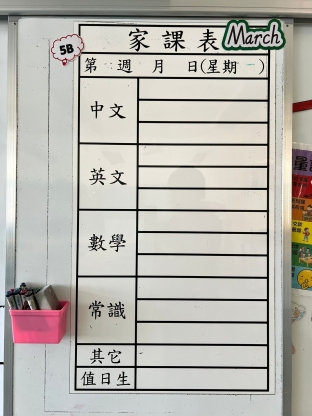 5B
家課表
March
第二週 月 日(星期一)
中文
英文
數學
常識
其它
值日生